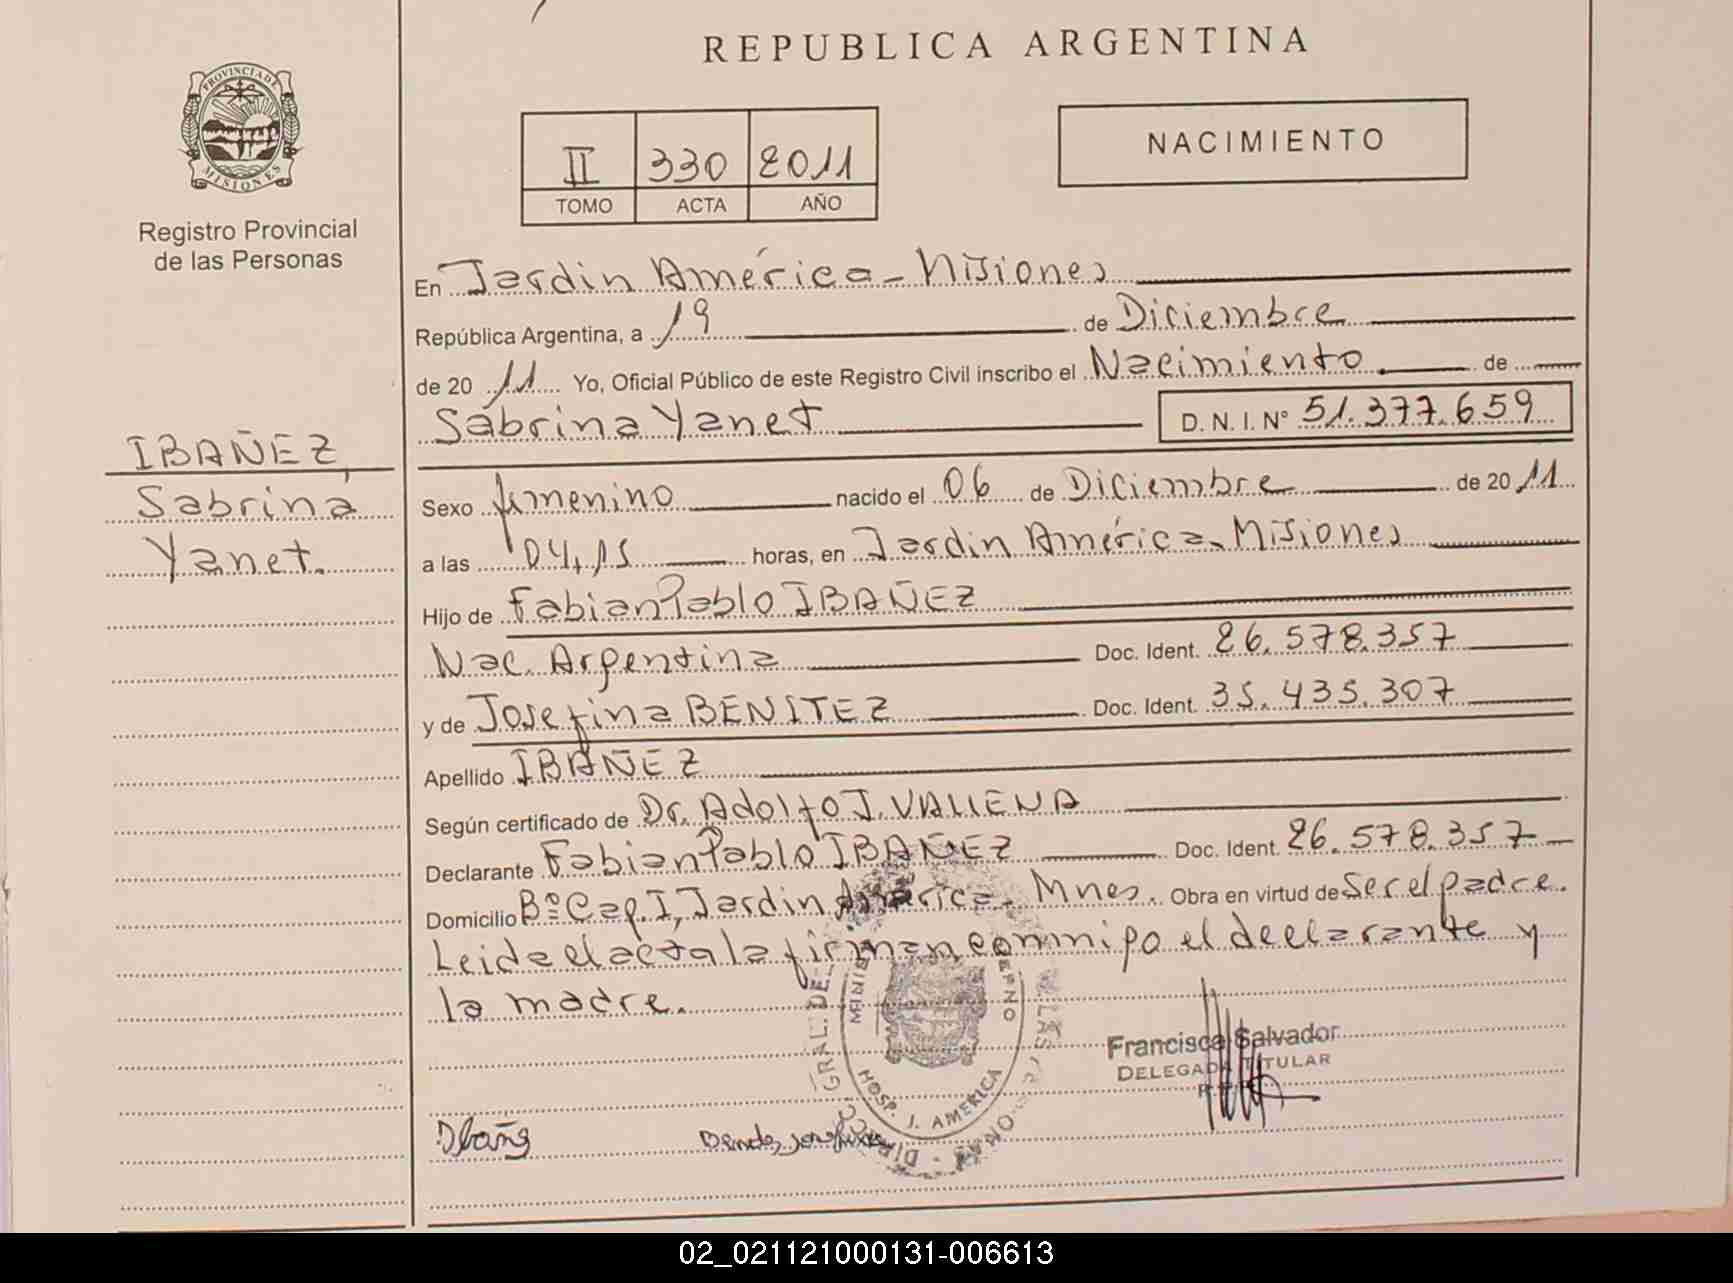 REPUBLICA ARGENTINA
PROVINCIA DE MISIONES
Registro Provincial
de las Personas
II 330 2011
TOMO ACTA AÑO
NACIMIENTO
IBAÑEZ,
Sabrina
Yanet.
En Jardin América - Misiones
República Argentina, a 19 de Diciembre
de 20 11 Yo, Oficial Público de este Registro Civil inscribo el Nacimiento de
Sabrina Yanet D. N. I. N° 51.377.659
Sexo femenino nacido el 06 de Diciembre de 20 11
a las 04,15 horas, en Jardin América - Misiones
Hijo de Fabian Pablo IBAÑEZ
Nac. Argentina Doc. Ident. 26.578.357
y de Josefina BENITEZ Doc. Ident. 35.435.307
Apellido IBAÑEZ
Según certificado de Dr. Adolfo J. VALLENA
Declarante Fabian Pablo IBAÑEZ Doc. Ident. 26.578.357
Domicilio Bº Cap. I, Jardin América - Mnes. Obra en virtud de Ser el padre.
Leida el acta la firman conmigo el declarante y
la madre.
Francisca Salvador
DELEGADA TITULAR
HOSP. J. AMERICA
02_021121000131-006613